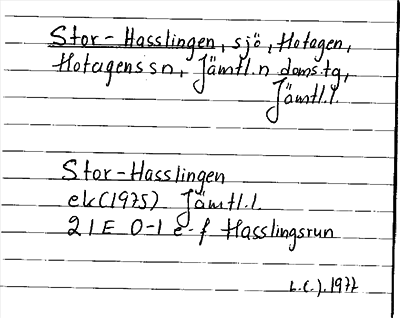 Stor-Hasslingen, sjö, Hotagen,
Hotagens sn, Jämtl.n doms.tg,
Jämtl.l.
Stor-Hasslingen
ek(1975) Jämtl.l.
21E 0-1 e-f Hasslingsrun
1977